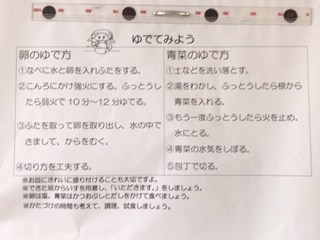 ゆでてみよう
卵のゆで方
①なべに水と卵を入れふたをする。
②こんろにかけ強火にする。ふっとうし
たら弱火で10分~12分ゆでる。
③ふたを取って卵を取り出し、水の中で
さまして、からをむく。
④切り方を工夫する。
青菜のゆで方
①土などを洗い落とす。
②湯をわかし、ふっとうしたら根から
青菜を入れる。
③もう一度ふっとうしたら火を止め、
水にとる。
④青菜の水気をしぼる。
⑤包丁で切る。
※お皿にきれいに盛り付けることも大切ですよ。
※できた班からいすを用意し、「いただきます。」をしましょう。
※卵は塩、青菜はかつおぶしとだしをかけて食べましょう。
※かたづけの時間も考えて、調理、試食しましょう。